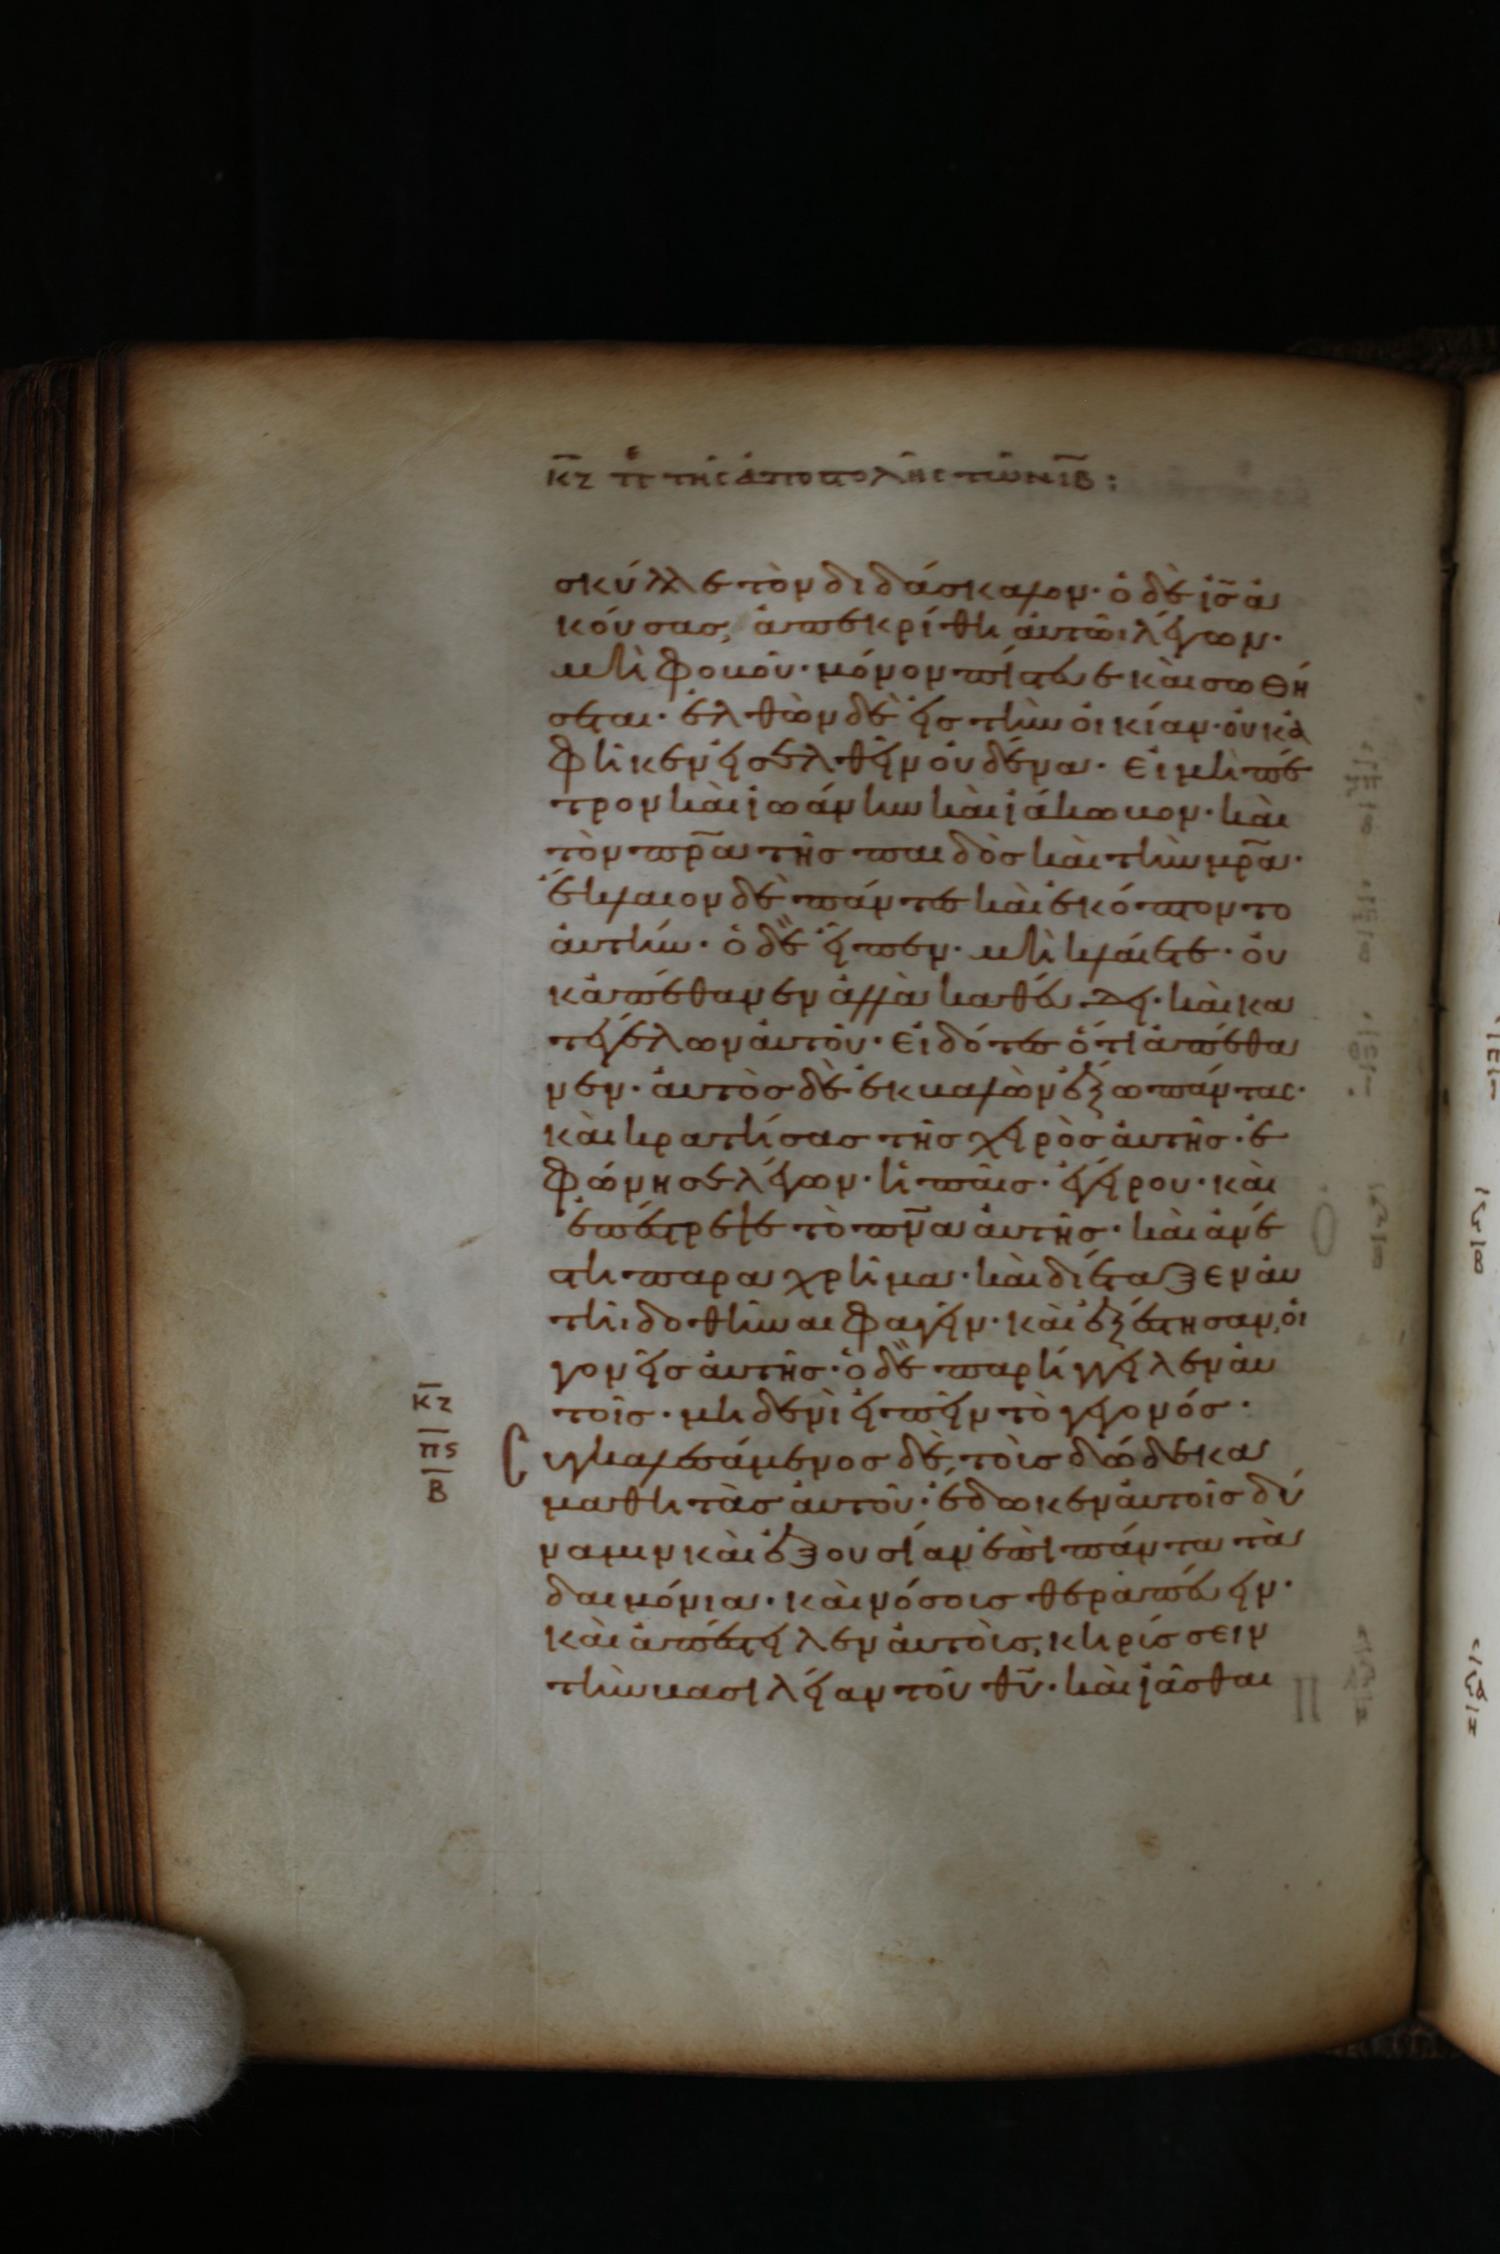 κζ πε τῆς ἀποστολῆς τῶν ιβ:
σκύλλε τὸν διδάσκαλον· ὁ δὲ ἰς ἀ
κούσας, ἀπεκρίθη αὐτῶι λέγων·
μὴ φοβοῦ· μόνον πίστευε καὶ σωθή
σεται· ἐλθὼν δὲ εἰς τὴν οἰκίαν· οὐκ ἀ
φῆκεν εἰσελθεῖν οὐδένα· εἰ μὴ πέ
τρον καὶ ἰωάννην καὶ ἰάκωβον· καὶ
τὸν πρα τῆς παιδὸς καὶ τὴν μρα·
ἔκλαιον δὲ πάντες καὶ ἐκόπτοντο
αὐτήν· ὁ δὲ εἶπεν· μὴ κλαίετε· οὐ
κ ἀπέθανεν ἀλλὰ καθεύδει· καὶ κα
τεγέλων αὐτοῦ· εἰδότες ὅτι ἀπέθα
νεν· αὐτὸς δὲ ἐκβαλὼν ἔξω πάντας·
καὶ κρατήσας τῆς χειρὸς αὐτῆς· ἐ
φώνησε λέγων· ἡ παῖς· ἐγείρου· καὶ
ἐπέστρεψε τὸ πνα αὐτῆς· καὶ ἀνέ
στη παραχρῆμα· καὶ διέταξεν αὐ
τῆι δοθῆναι φαγεῖν· καὶ ἐξέστησαν, οἱ
γονεῖς αὐτῆς· ὁ δὲ παρήγγειλεν αὐ
τοῖς· μηδενὶ εἰπεῖν τὸ γεγονός·
κζ
πς
β
Συγκαλεσάμενος δὲ, τοὺς δώδεκα
μαθητὰς αὐτοῦ· ἔδωκεν αὐτοῖς δύ
ναμιν καὶ ἐξουσίαν ἐπὶ πάντα τὰ
δαιμόνια· καὶ νόσοις θεραπεύειν·
καὶ ἀπέστειλεν αὐτοὺς, κηρύσσειν
τὴν βασιλείαν τοῦ θυ· καὶ ἰᾶσθαι